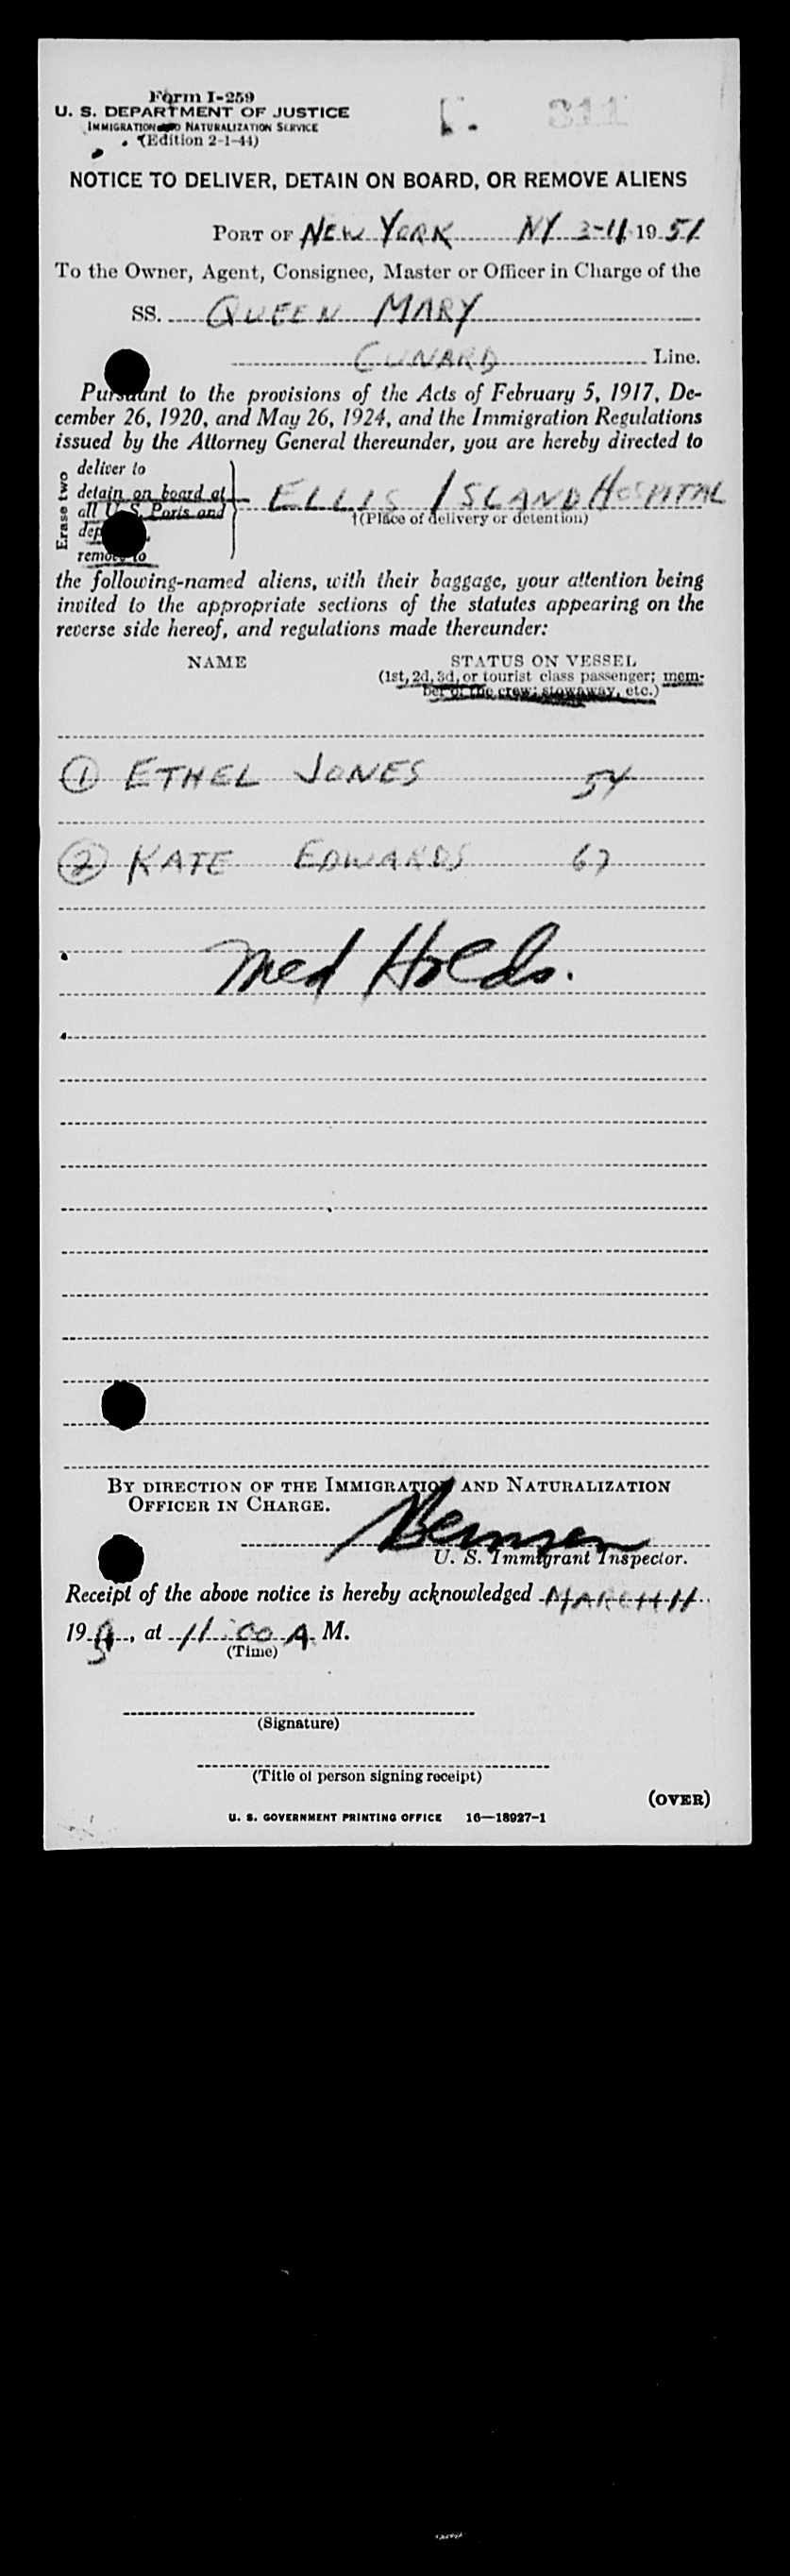 Form I-259
U. S. DEPARTMENT OF JUSTICE
IMMIGRATION AND NATURALIZATION SERVICE
(Edition 2-1-44)
311
NOTICE TO DELIVER, DETAIN ON BOARD, OR REMOVE ALIENS
PORT OF NEW YORK NY 3-11 1951
To the Owner, Agent, Consignee, Master or Officer in Charge of the
SS. QUEEN MARY
CUNARD Line.
Pursuant to the provisions of the Acts of February 5, 1917, De-
cember 26, 1920, and May 26, 1924, and the Immigration Regulations
issued by the Attorney General thereunder, you are hereby directed to
Erase two
deliver to
detain on board at
all U. S. Ports and
remove to
ELLIS ISLAND HOSPITAL
†(Place of delivery or detention)
the following-named aliens, with their baggage, your attention being
invited to the appropriate sections of the statutes appearing on the
reverse side hereof, and regulations made thereunder:
NAME STATUS ON VESSEL
(1st, 2d, 3d, or tourist class passenger; mem-
ber of the crew; stowaway, etc.)
① ETHEL JONES 54
② KATE EDWARDS 67
Med Holds.
BY DIRECTION OF THE IMMIGRATION AND NATURALIZATION
OFFICER IN CHARGE.
U. S. Immigrant Inspector.
Receipt of the above notice is hereby acknowledged MARCH 11
1951, at 11:00 A. M.
(Time)
(Signature)
(Title of person signing receipt)
(OVER)
U. S. GOVERNMENT PRINTING OFFICE 16—18927-1